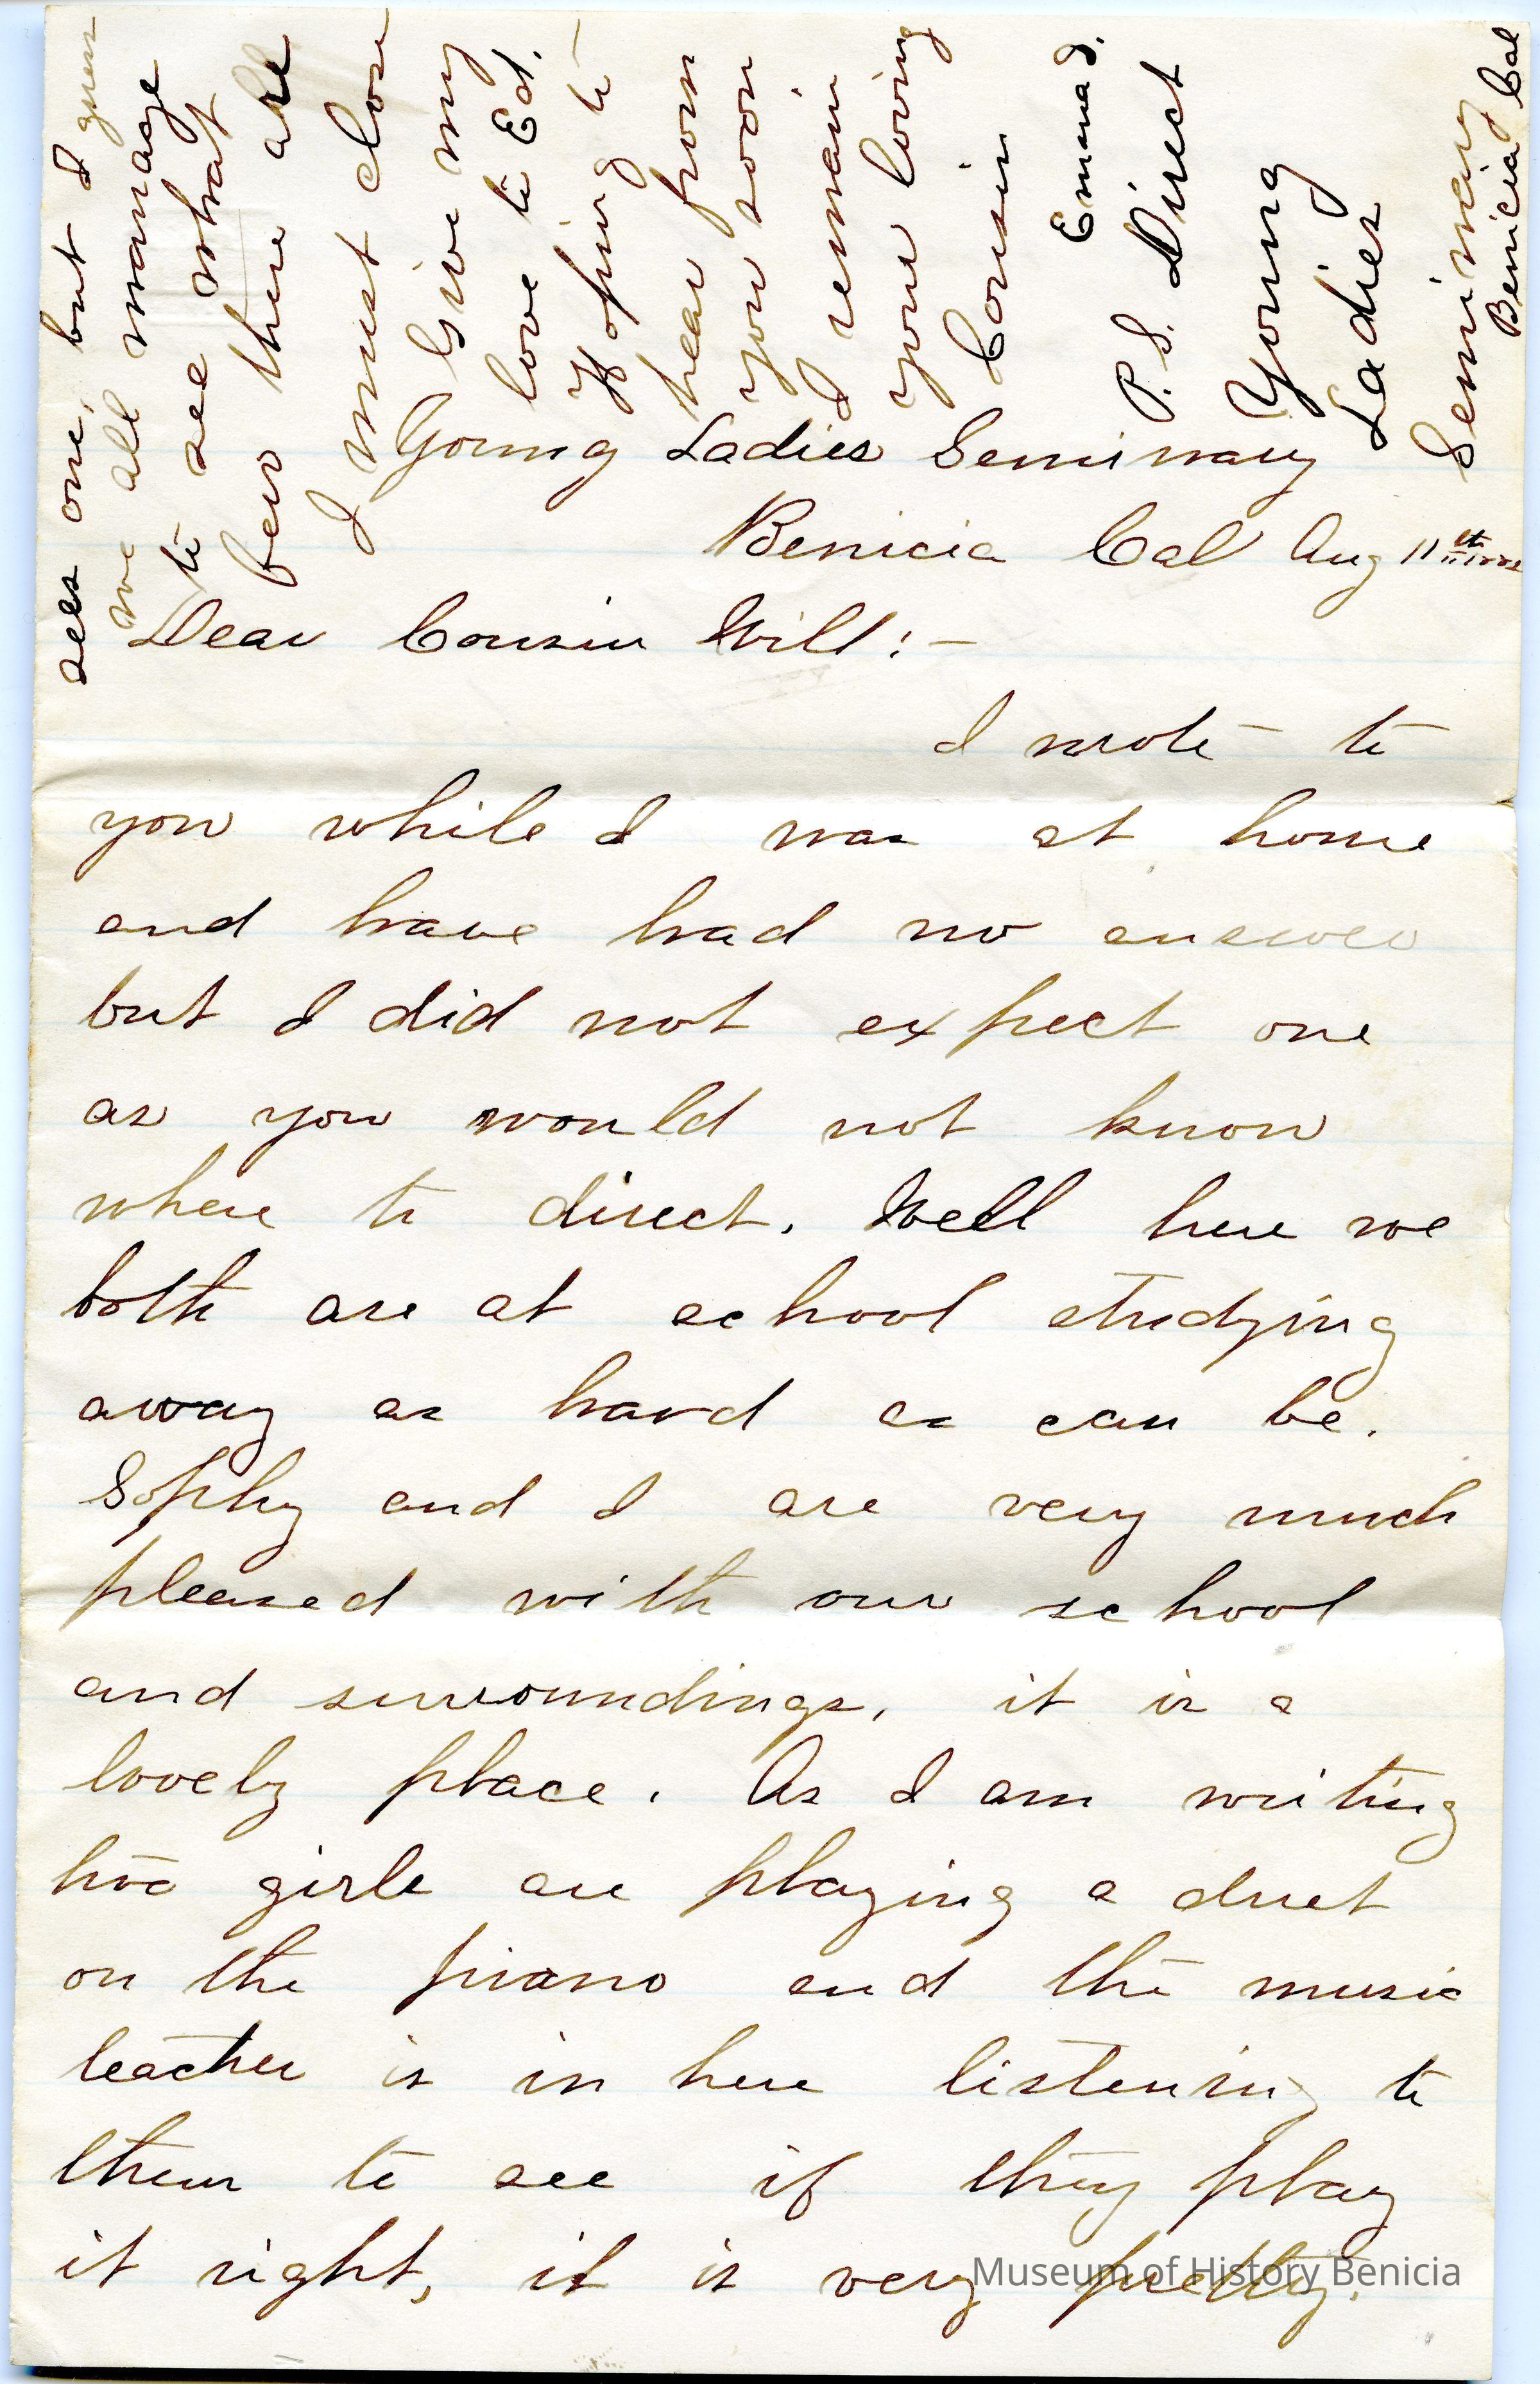 Young Ladies Seminary
Benicia Cal Aug 11th
Dear Cousin Will:—
I wrote to
you while I was at home
and have had no answer
but I did not expect one
as you would not know
where to direct. Well here we
both are at school studying
away as hard as can be.
Sophy and I are very much
pleased with our school
and surroundings, it is a
lovely place. As I am writing
two girls are playing a duet
on the piano and the music
teacher is in here listening to
them to see if they play
it right, it is very pretty.
sees one, but I guess
we all manage
to see what
few there are
I must close
Give my
love to Ed.
Hoping to
hear from
you soon
I remain
your loving
Cousin
Emma J.
P.S. Direct
Young
Ladies
Seminary
Benicia Cal
Museum of History Benicia